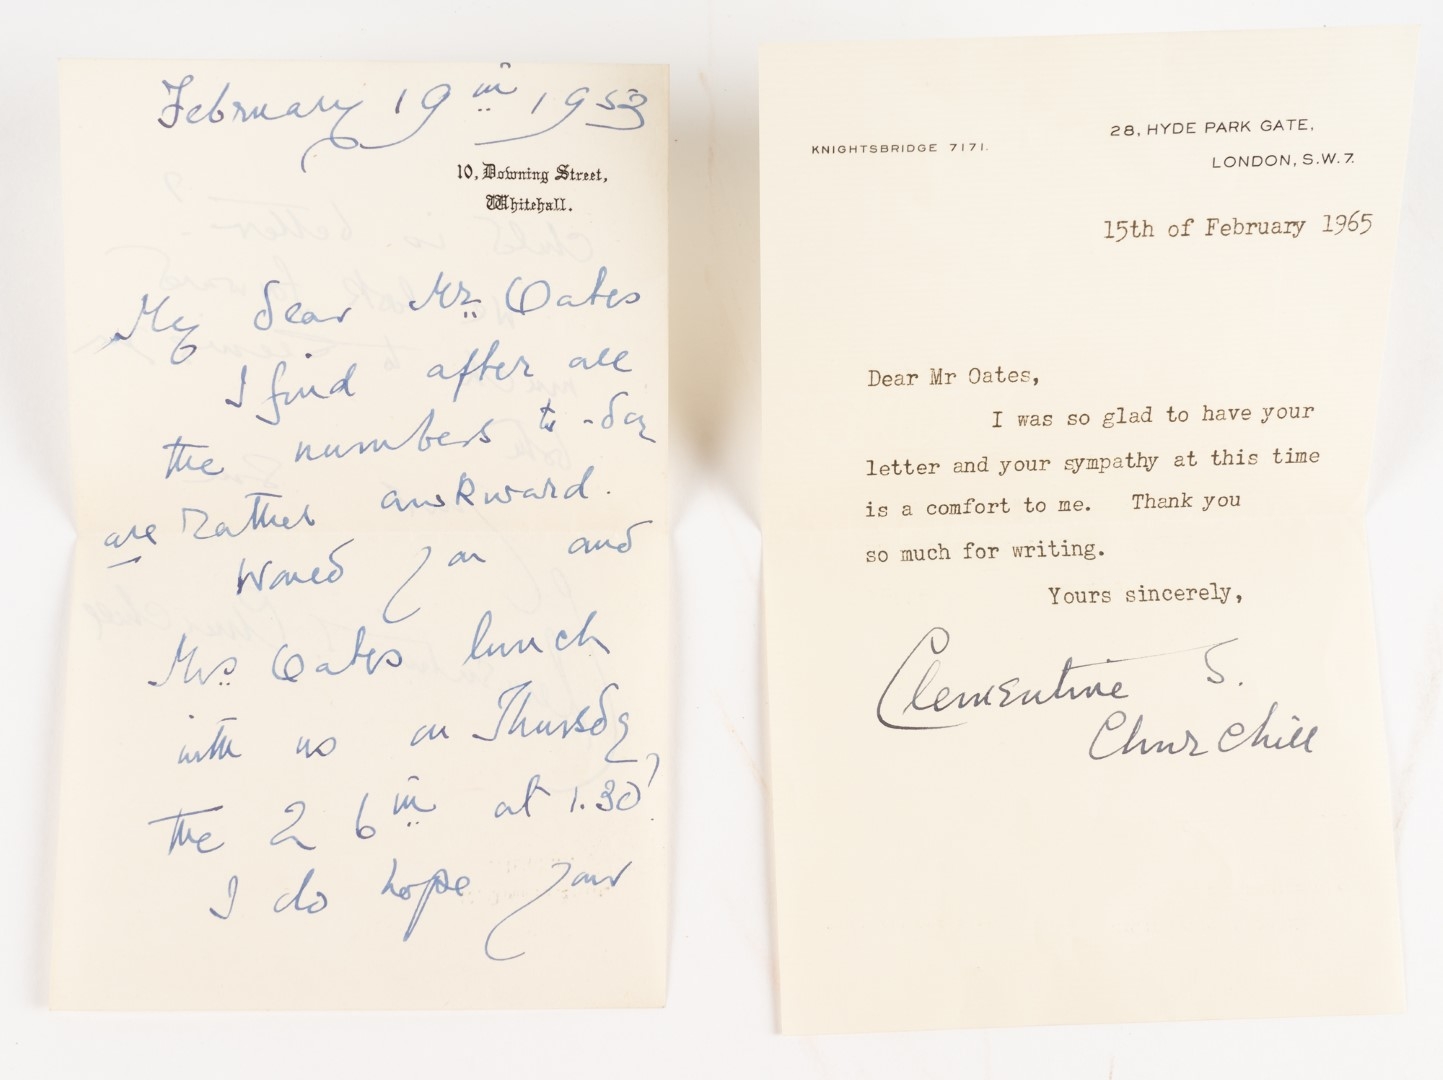 February 19th 1953
10, Downing Street,
Whitehall.
My dear Mr Oates
I find after all
the numbers to-day
are rather awkward.
Would you and
Mrs Oates lunch
with us on Thursday
the 26th at 1.30?
I do hope your
KNIGHTSBRIDGE 7171.
28, HYDE PARK GATE,
LONDON, S.W.7.
15th of February 1965
Dear Mr Oates,
I was so glad to have your
letter and your sympathy at this time
is a comfort to me. Thank you
so much for writing.
Yours sincerely,
Clementine S.
Churchill